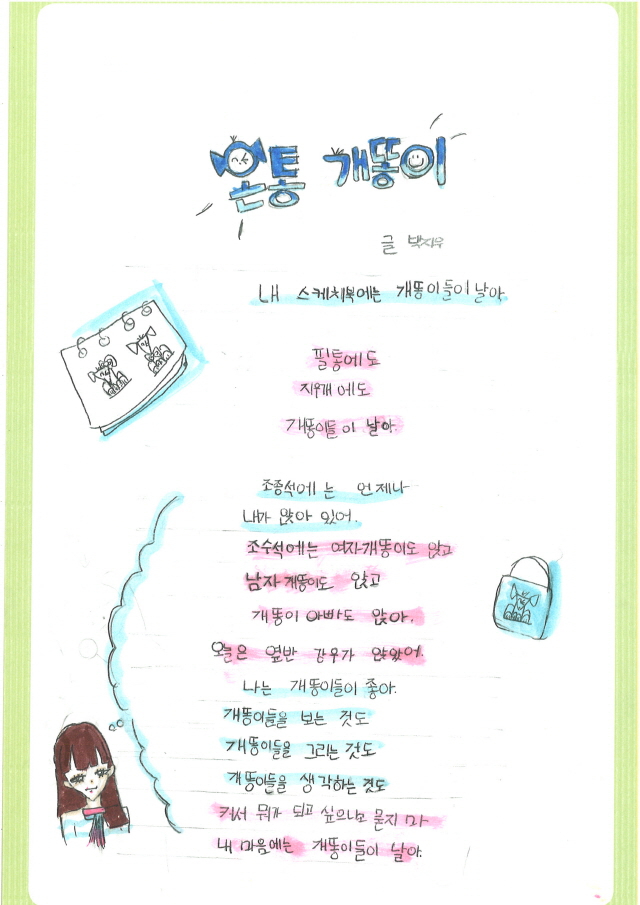 온통 개똥이
글 박지우
내 스케치북에는 개똥이들이 날아.
필통에도
지우개에도
개똥이들이 날아.
조종석에는 언제나
내가 앉아 있어.
조수석에는 여자개똥이도 앉고
남자개똥이도 앉고
개똥이 아빠도 앉아.
오늘은 옆반 강우가 앉았어.
나는 개똥이들이 좋아.
개똥이들을 보는 것도
개똥이들을 그리는 것도
개똥이들을 생각하는 것도
커서 뭐가 되고 싶으냐고 묻지 마
내 마음에는 개똥이들이 날아.